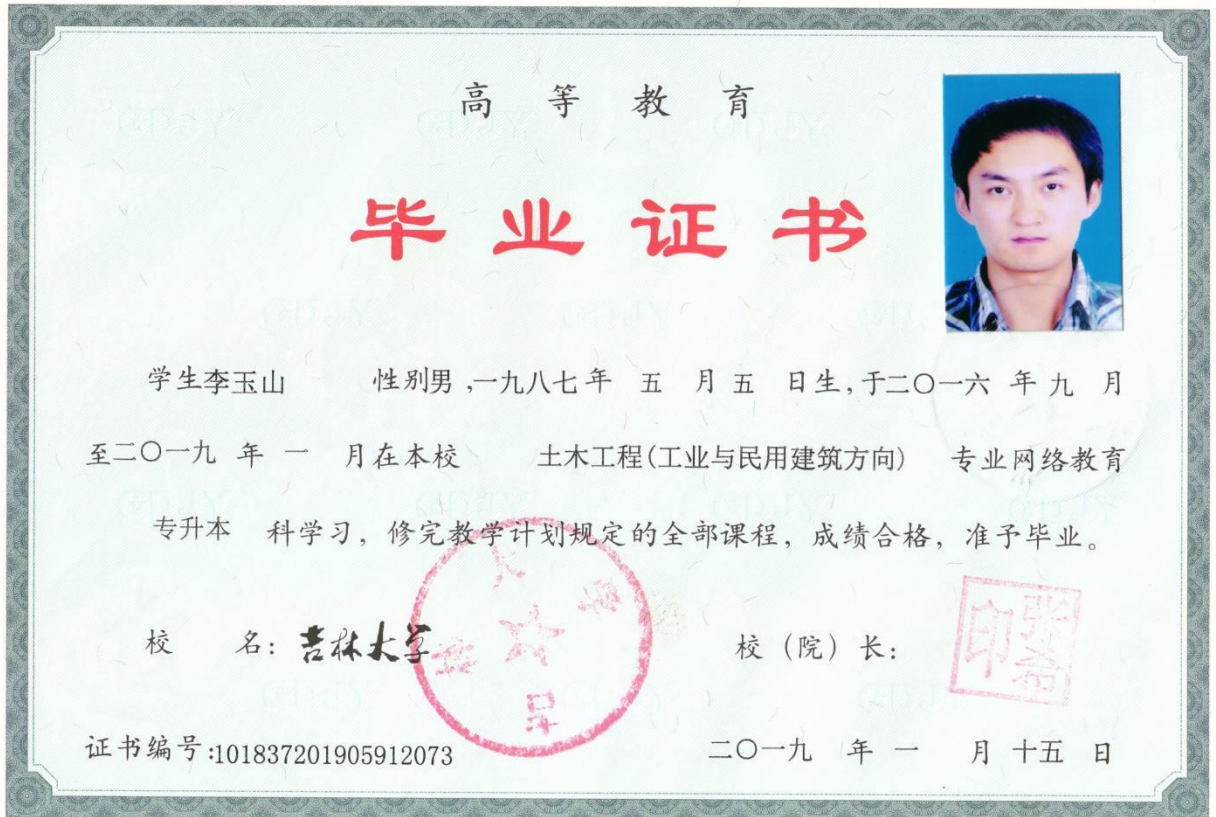 高等教育
毕业证书
学生李玉山 性别男,一九八七年 五 月五 日生,于二〇一六 年 九 月
至二〇一九 年 一 月在本校 土木工程(工业与民用建筑方向) 专业网络教育
专升本 科学习，修完教学计划规定的全部课程，成绩合格，准予毕业。
校 名：吉林大学 校（院）长：
张希印
证书编号:101837201905912073 二〇一九 年 一 月 十五 日